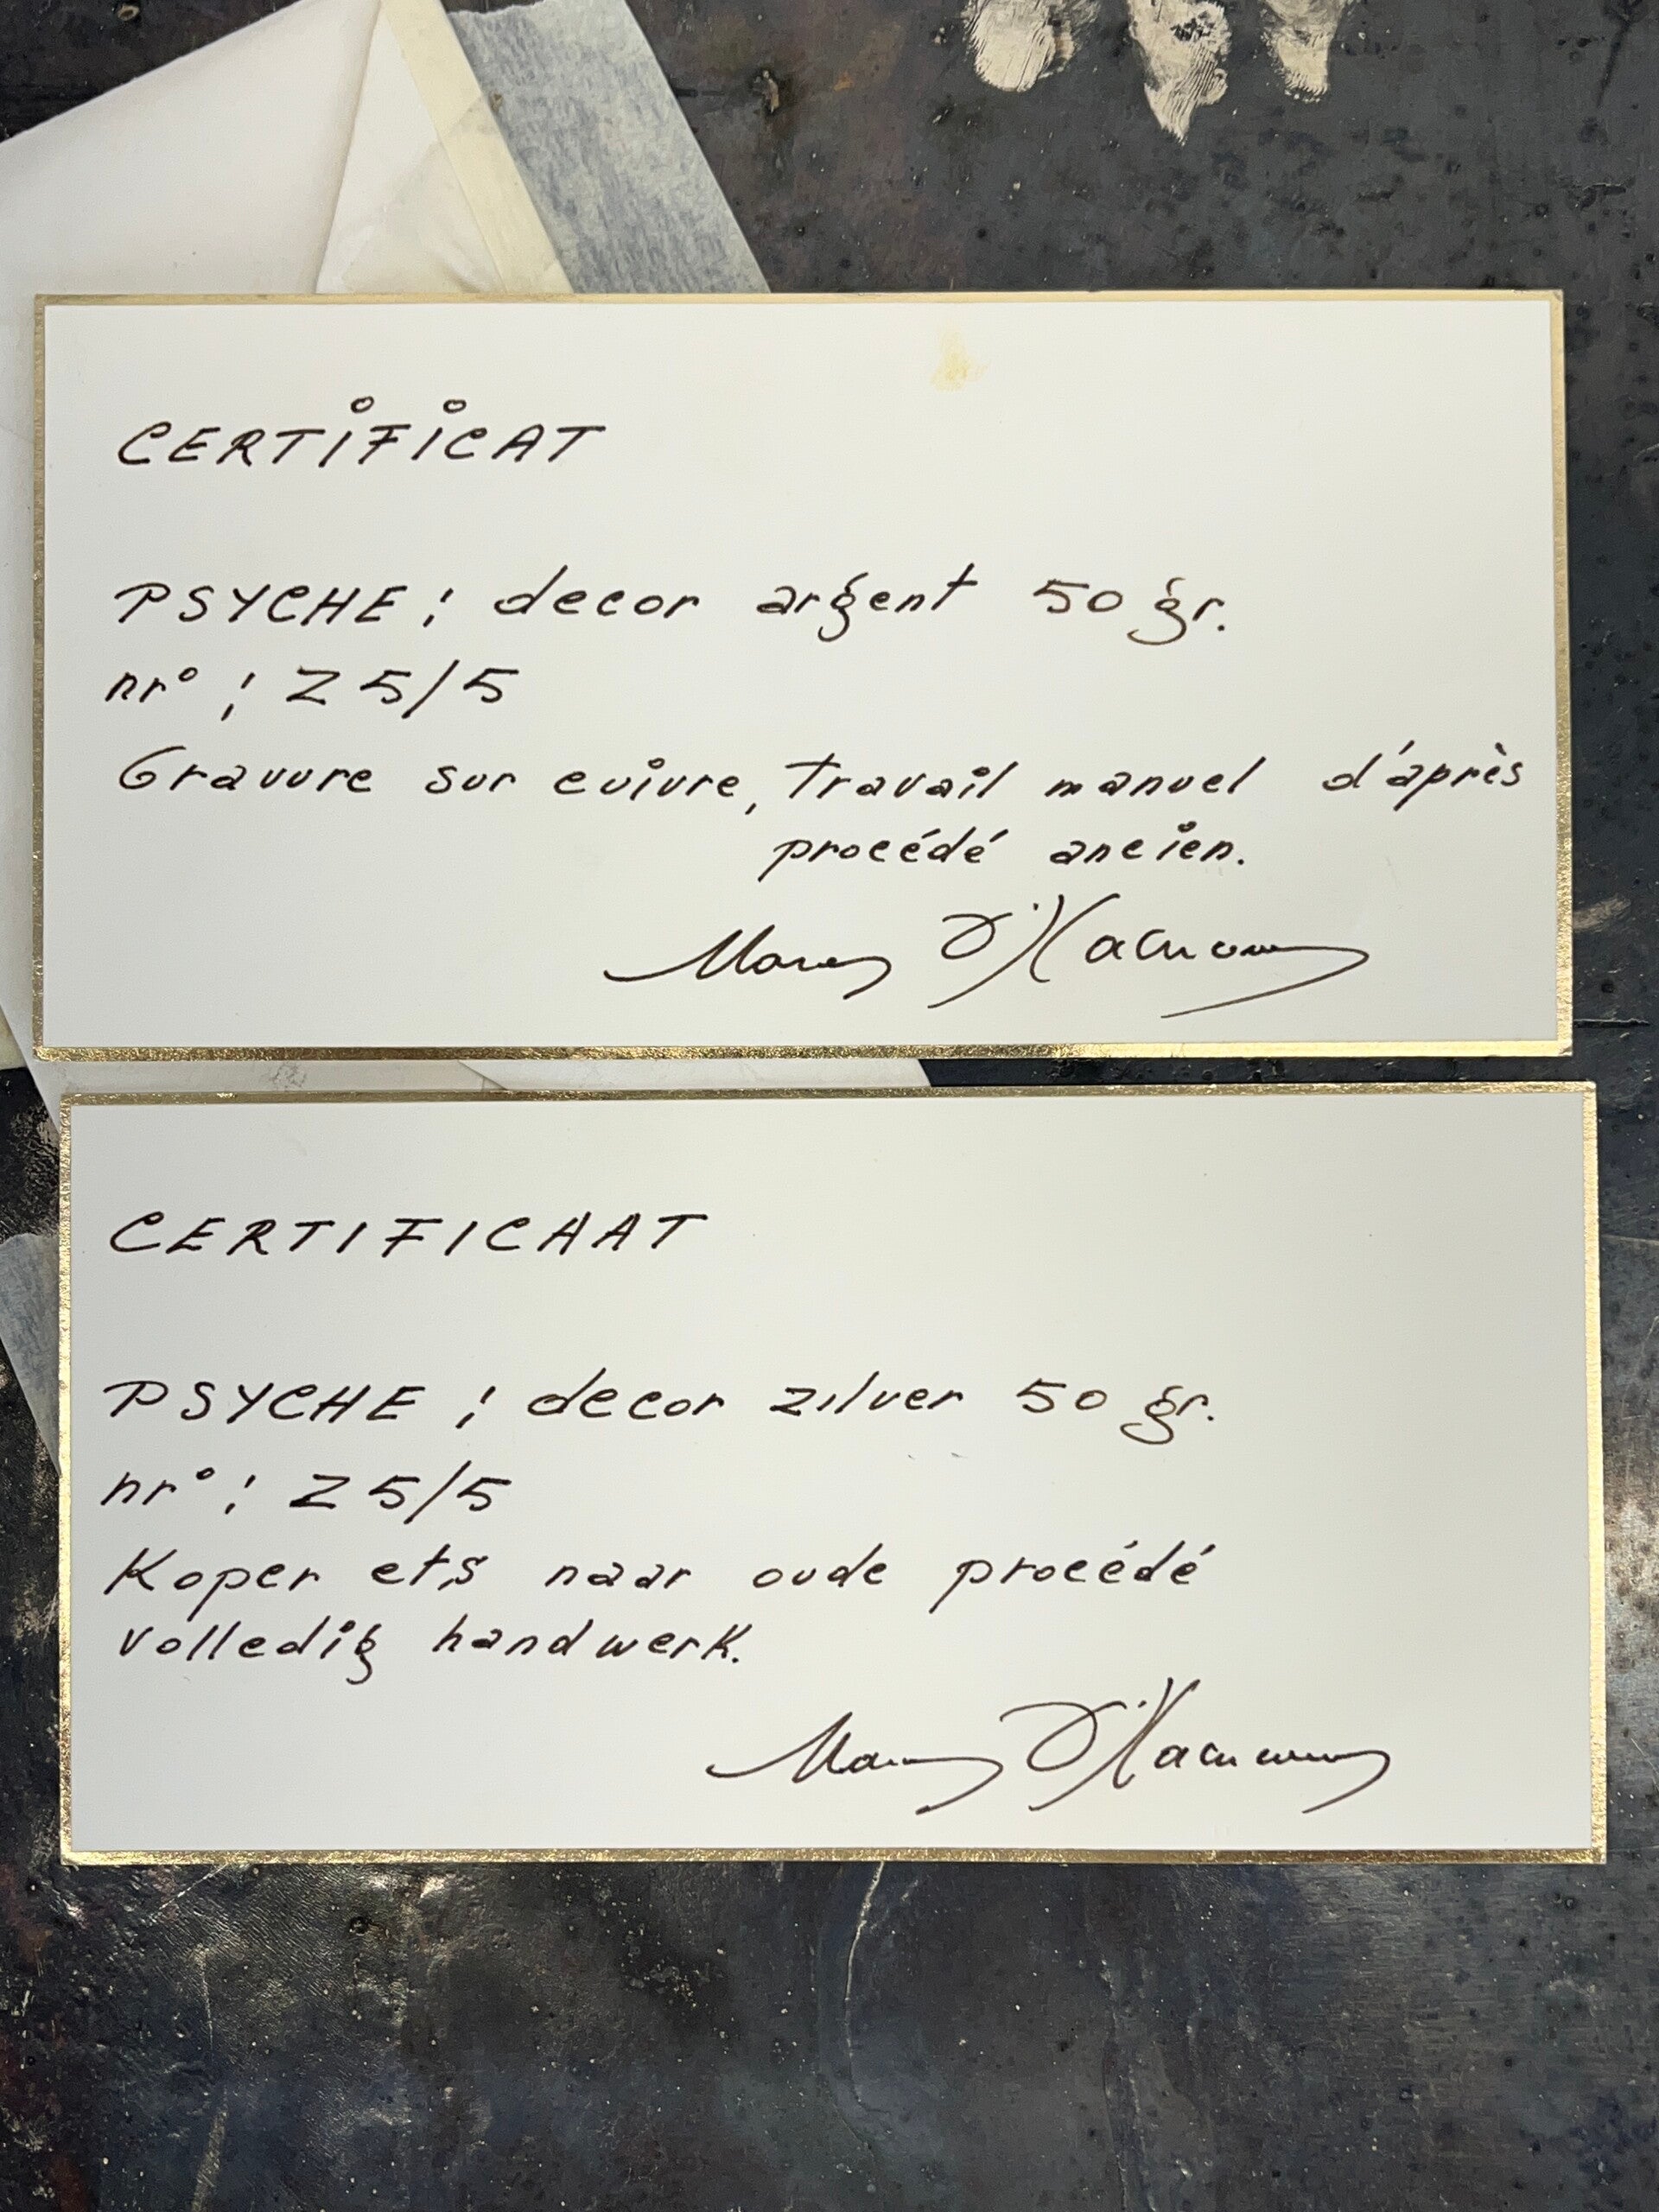 CERTiFiCAT
PSYCHE: decor argent 50 gr.
nr°: Z 5/5
Gravure sur cuivre, travail manuel d'après
procédé ancien.
CERTIFICAAT
PSYCHE: decor zilver 50 gr.
nr°: Z 5/5
Koper ets naar oude procédé
volledig handwerk.